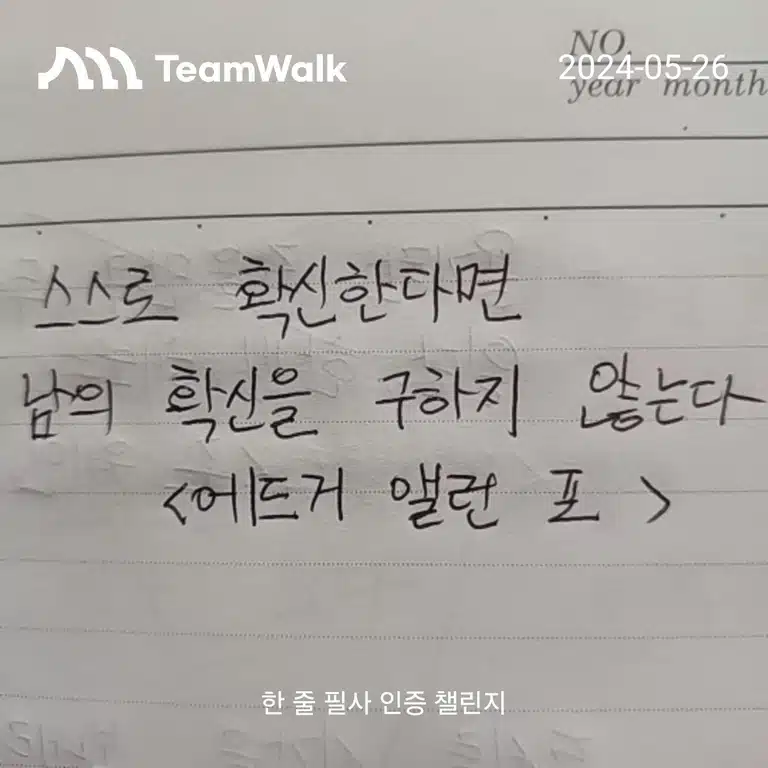 TeamWalk
NO.
2024-05-26
year month
스스로 확신한다면
남의 확신을 구하지 않는다
<에드거 앨런 포>
한 줄 필사 인증 챌린지